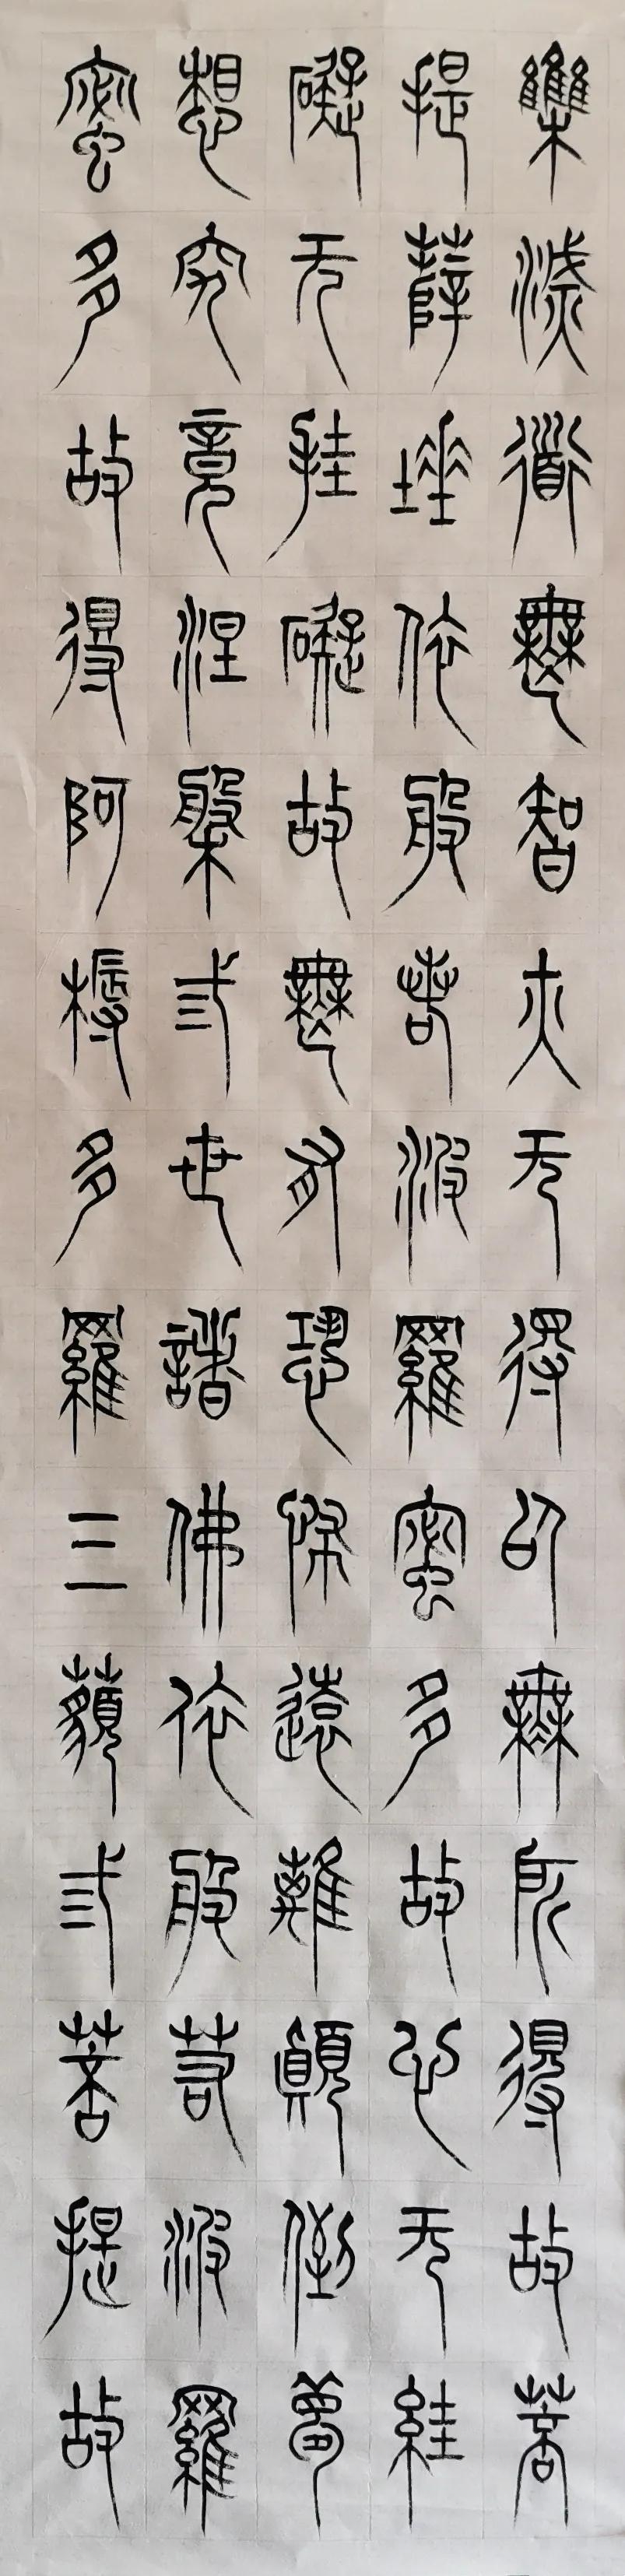 雧滅道無智亦无得以無所得故菩
提薩埵依般若波羅蜜多故心无絓
礙无挂礙故無有恐怖遠離顛倒夢
想究竟涅槃弎世諸佛依般若波羅
蜜多故得阿耨多羅三藐弎菩提故